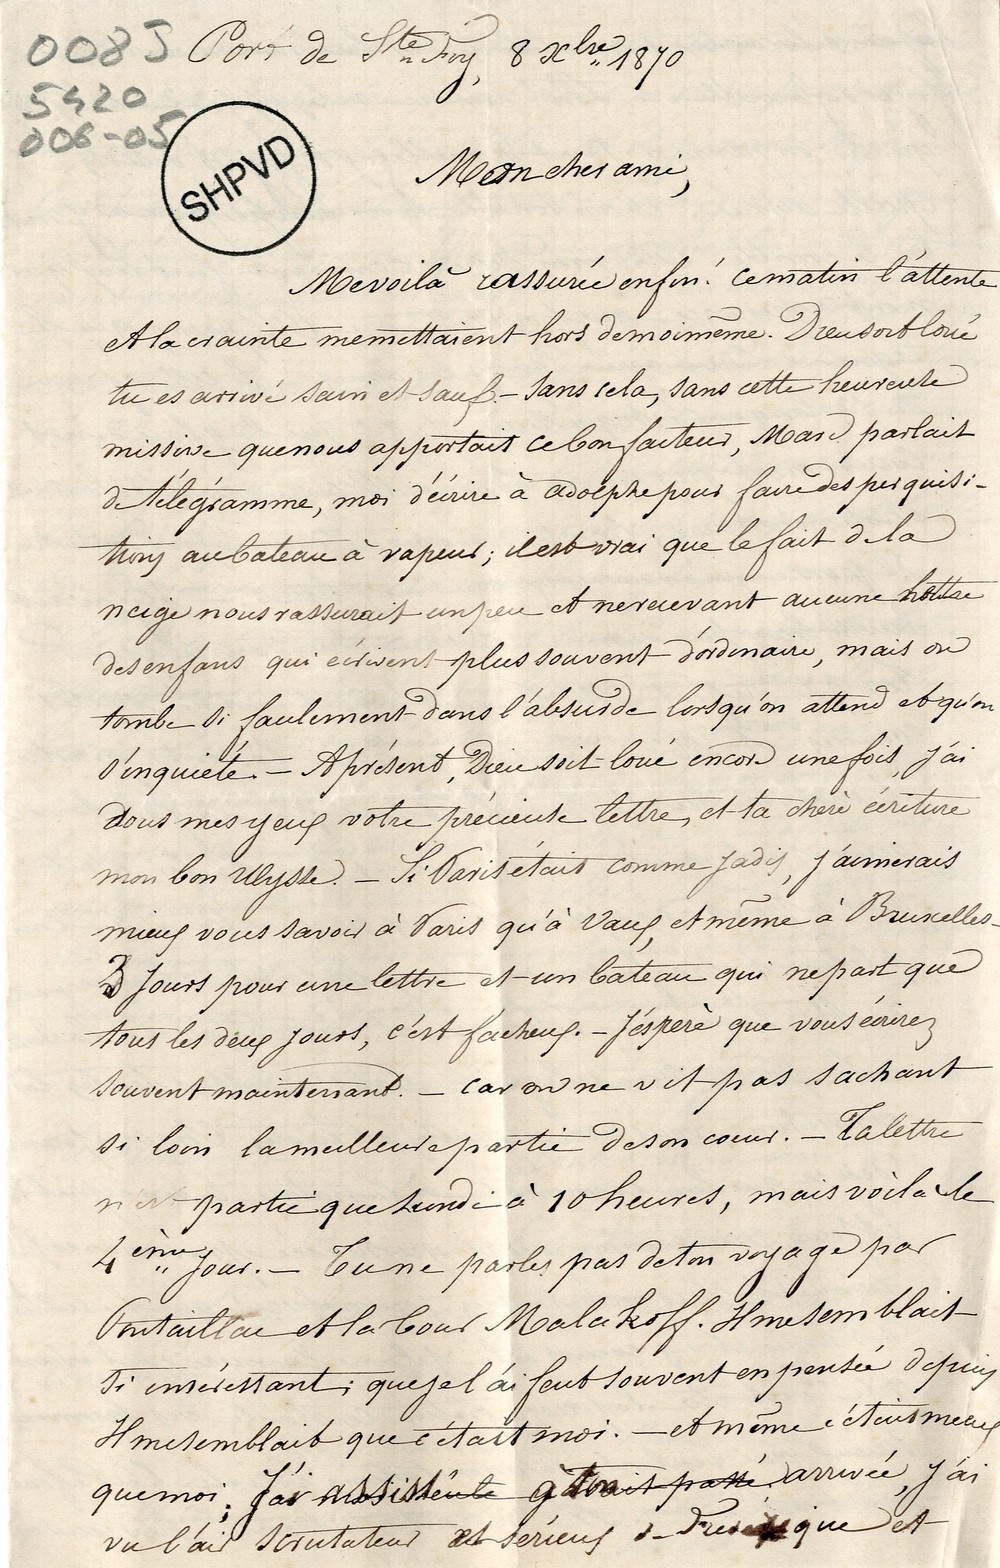 0085
5420
006-05
SHPVD
Port de Ste Foy, 8 xbre 1870
Mon cher ami,
Me voilà rassurée enfin! ce matin l'attente
et la crainte me mettaient hors de moi même. Dieu soit loué
tu es arrivé sain et sauf. – sans cela, sans cette heureuse
missive que nous apportait ce bon facteur, Marc parlait
de télégramme, moi d'écrire à adolphe pour faire des perquisi-
tions au bateau à vapeur; il est vrai que le fait de la
neige nous rassurait un peu et ne recevant aucune lettre
des enfans qui écrivent plus souvent d'ordinaire, mais on
tombe si facilement dans l'absurde lorsqu'on attend et qu'on
s'inquiète. – A présent, Dieu soit loué encore une fois, j'ai
sous mes yeux votre précieuse lettre, et ta chère écriture
mon bon Ulysse. – Si Paris était comme jadis, j'aimerais
mieux vous savoir à Paris qu'à Vaux, et même à Bruxelles –
3 jours pour une lettre et un bateau qui ne part que
tous les deux jours, c'est facheux. – J'éspère que vous écrirez
souvent maintenant. – car on ne vit pas sachant
si loin la meilleure partie de son cœur. – Ta lettre
n'est partie que Lundi à 10 heures, mais voila le
4ème jour. – Tu ne parles pas de ton voyage par
Pontaillac et la tour Malakoff. Il me semblait
si intéressant; que je l'ai fait souvent en pensée depuis
Il me semblait que c'était moi. – et même c'était mieux
que moi; j'ai arrivée, j'ai
vu l'air scrutateur et sérieux de que et